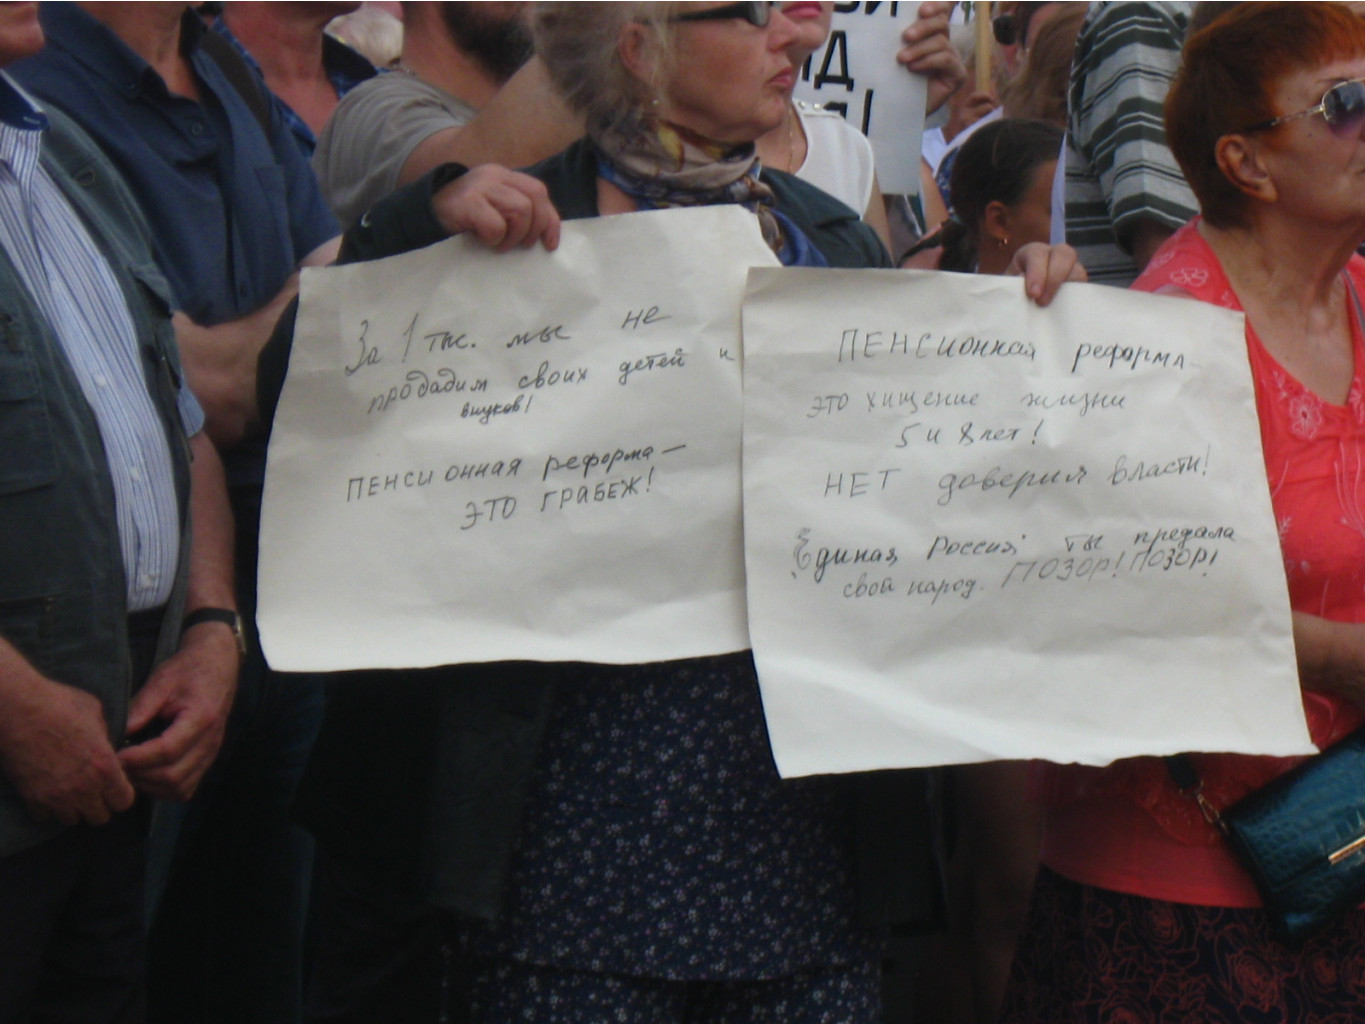 За 1 тыс. мы не
продадим своих детей и
внуков!
ПЕНСИОННАЯ реформа —
ЭТО ГРАБЕЖ!
ПЕНСИОННАЯ реформа —
ЭТО хищение жизни
5 и 8 лет!
НЕТ доверия власти!
Единая Россия ты предала
свой народ. ПОЗОР! ПОЗОР!